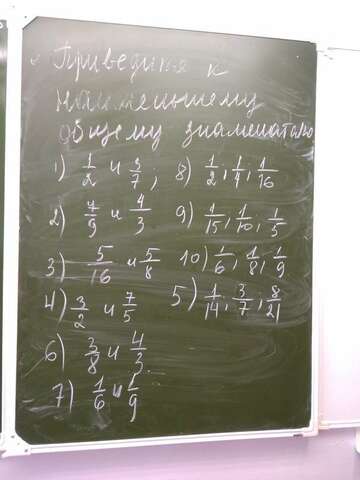 Приведите к
наименьшему
общему знаменателю
1) 1/2 и 3/7; 8) 1/2, 1/4, 1/16
2) 7/9 и 4/3 9) 1/15, 1/10, 1/5
3) 5/16 и 5/8 10) 1/6, 1/8, 1/9
4) 3/2 и 7/5 5) 1/14, 3/7, 8/21
6) 3/8 и 4/3
7) 1/6 и 1/9